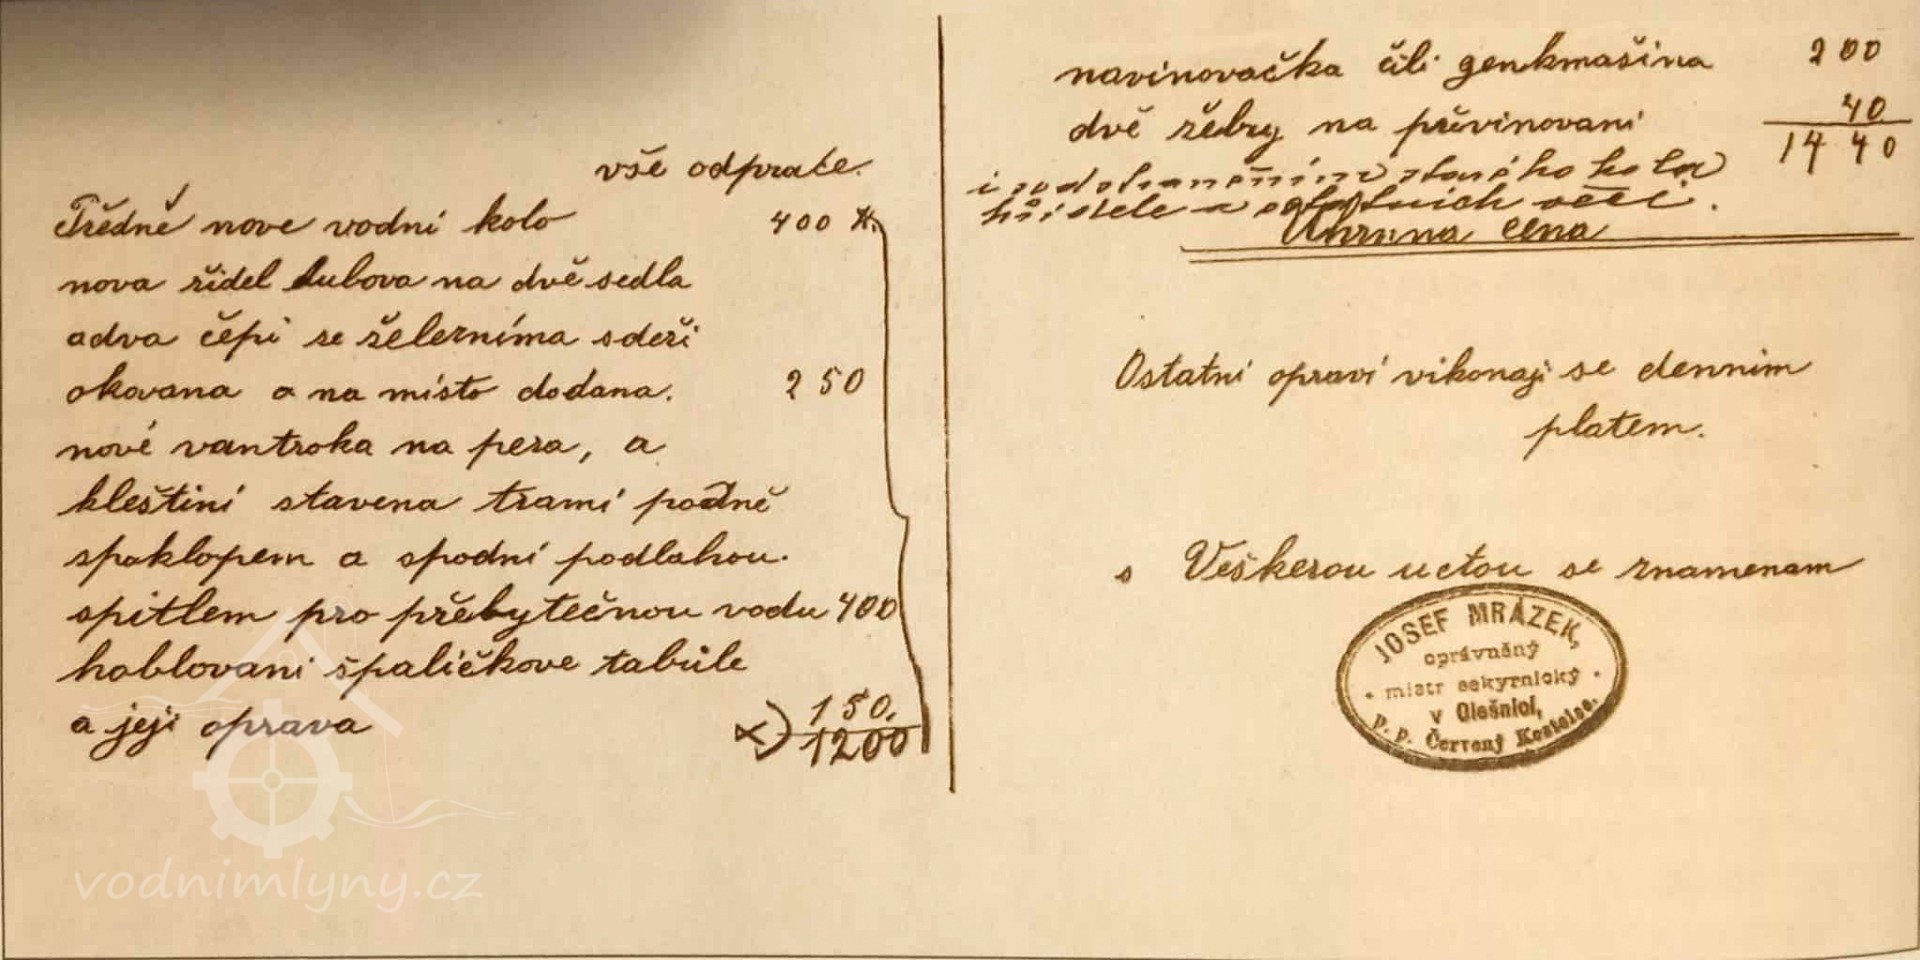 vše odpraće.
Třědně nove vodni kolo 400 K.
nova řidel dubova na dvě sedla
a dva čepi se želerníma sdeři
okovana a na misto dodana. 250
nové vantroka na pera, a
kleštini stavena trami podně
spoklopem a spodni podlahou.
spitlem pro přebytečnou vodu 400
hoblovani špaličkove tabule
a jeji oprava 150.
1200
navinovačka čili genkmašina 200
dvě řebry na převinovani 40
1440
i sodstraněním starého kola
hřídele a ostatních věcí.
cena
Ostatni opravi vikonaji se dennim
platem.
s Veškerou uctou se znamenam
JOSEF MRÁZEK,
oprávněný
mistr sekyrnický
v Olešnici,
p. p. Červený Kostelec.
vodnimlyny.cz